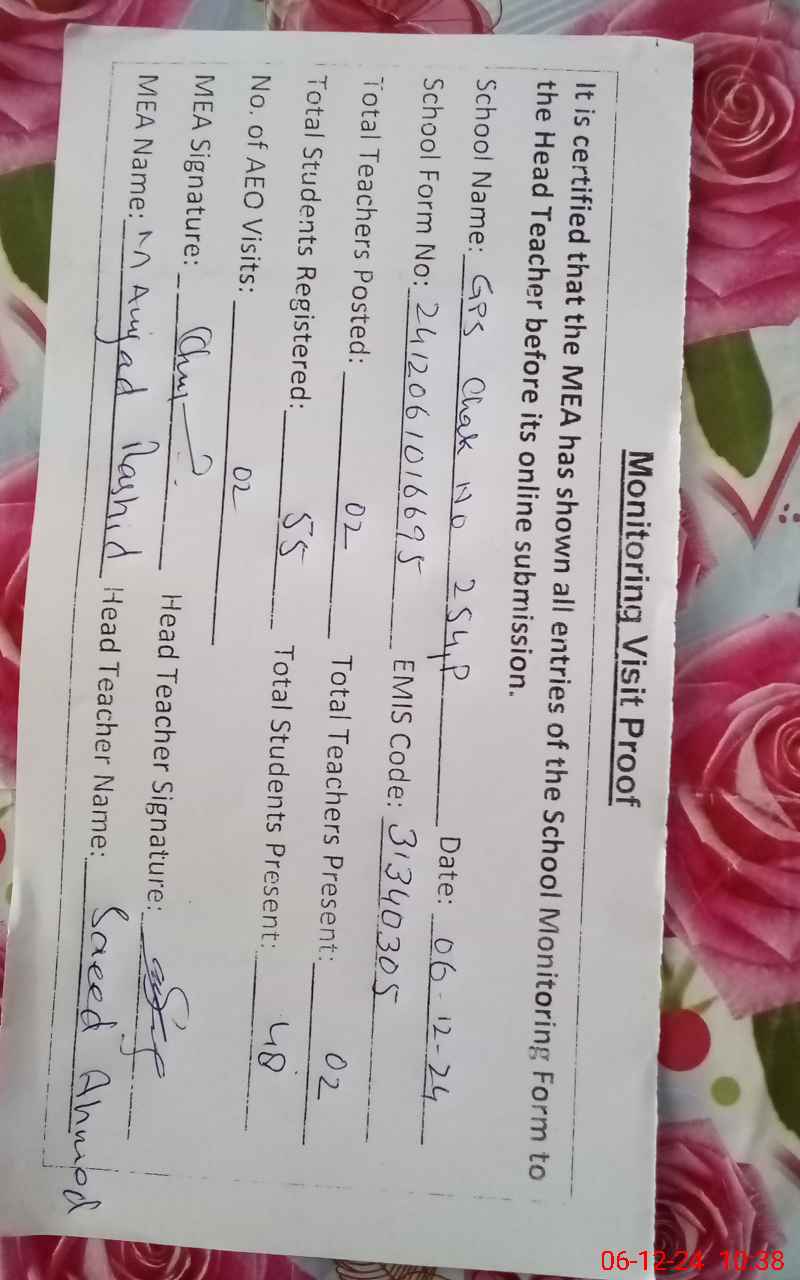 Monitoring Visit Proof
It is certified that the MEA has shown all entries of the School Monitoring Form to
the Head Teacher before its online submission.
School Name: GPS Chak No 254,P Date: 06-12-24
School Form No: 2412061016695 EMIS Code: 31340305
Total Teachers Posted: 02 Total Teachers Present: 02
Total Students Registered: 55 Total Students Present: 48
No. of AEO Visits: 02
MEA Signature: Head Teacher Signature:
MEA Name: M Amjad Rashid Head Teacher Name: Saeed Ahmed
06-12-24 10:38